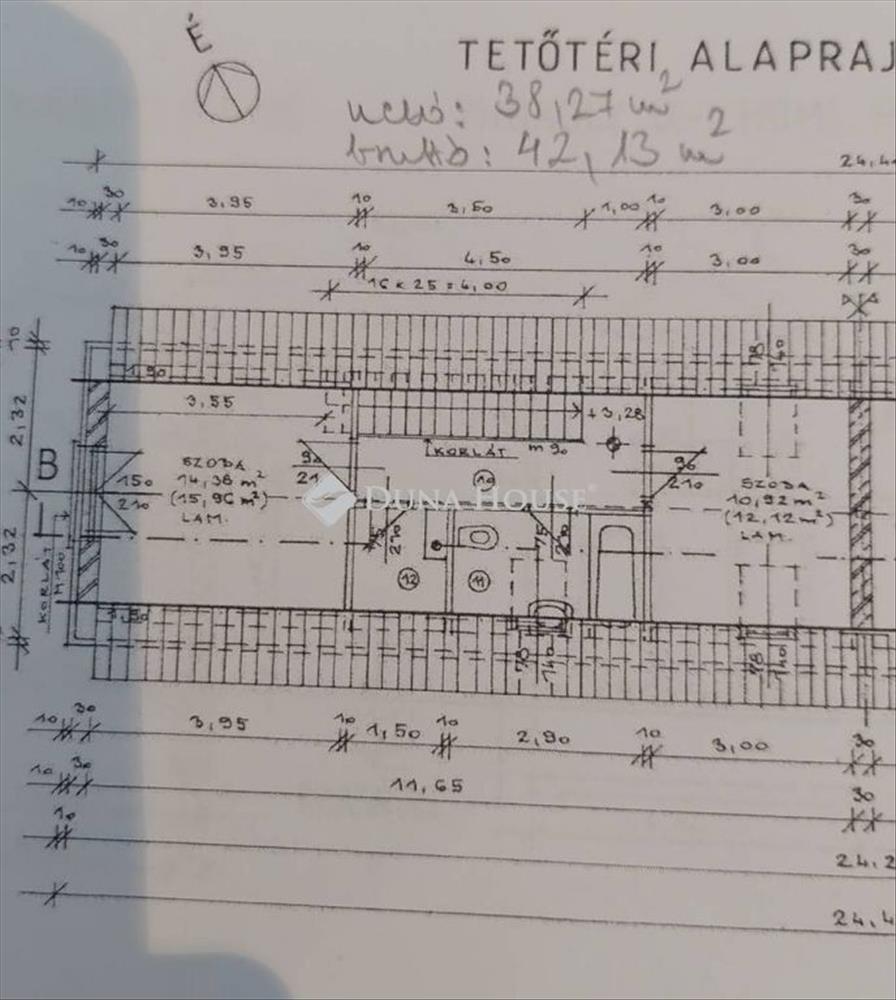 É
TETŐTÉRI ALAPRAJ
nettó: 38,27 m²
bruttó: 42,13 m²
24,4
10 30 3,95 10 3,50 1,00 10 3,00 30
10 30 3,95 10 4,50 10 3,00 30
16 x 25 = 4,00
10
1,90
78
140
2,32
3,55
+3,28
B
KORLÁT m 90
SZOBA
14,38 m²
(15,96 m²)
LAM.
150
210
90
21
10
90
210
SZOBA
10,92 m²
(12,12 m²)
LAM.
DUNA HOUSE
75
210
75
210
2,32
KORLÁT
M 100
12
11
78
140
78
140
10 30 3,95 10 1,50 10 2,90 10 3,00 30
10 30 11,65 30
10
24,2
24,4